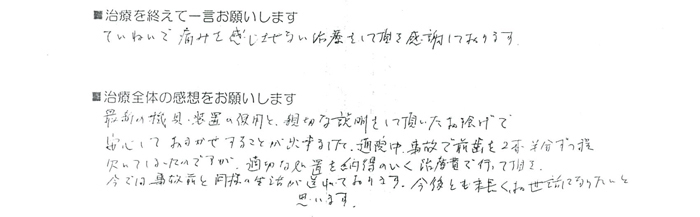 ■治療を終えて一言お願いします
ていねいで痛みを感じさせない治療をして頂き感謝しております。
■治療全体の感想をお願いします
最新の機具・装置の使用と、親切な説明をして頂いたお陰げで
安心しておまかせすることが出来ました。通院中、事故で前歯を2本半分ずつ程
欠いてしまったのですが、適切な処置を納得のいく治療費で行って頂き、
今では事故前と同様の生活が送れております。今後とも末長くお世話になりたいと
思います。